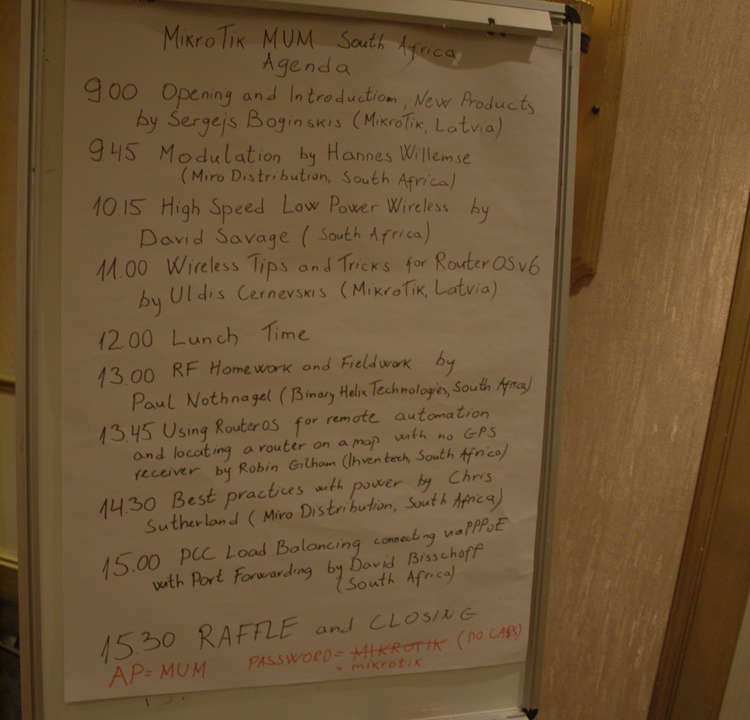 MikroTik MUM South Africa
Agenda
9.00 Opening and Introduction, New Products
by Sergejs Boginskis (MikroTik, Latvia)
9.45 Modulation by Hannes Willemse
(Miro Distribution, South Africa)
10.15 High Speed Low Power Wireless by
David Savage (South Africa)
11.00 Wireless Tips and Tricks for RouterOSv6
by Uldis Cernevskis (MikroTik, Latvia)
12.00 Lunch Time
13.00 RF Homework and Fieldwork by
Paul Nothnagel (Binary Helix Technologies, South Africa)
13.45 Using RouterOS for remote automation
and locating a router on a map with no GPS
receiver by Robin Gilham (Inventech, South Africa)
14.30 Best practices with power by Chris
Sutherland (Miro Distribution, South Africa)
15.00 PCC Load Balancing connecting via PPPoE
with Port Forwarding by David Bisschoff
(South Africa)
15.30 RAFFLE and CLOSING
AP= MUM PASSWORD= MIKROTIK (NO CAPS)
= mikrotik